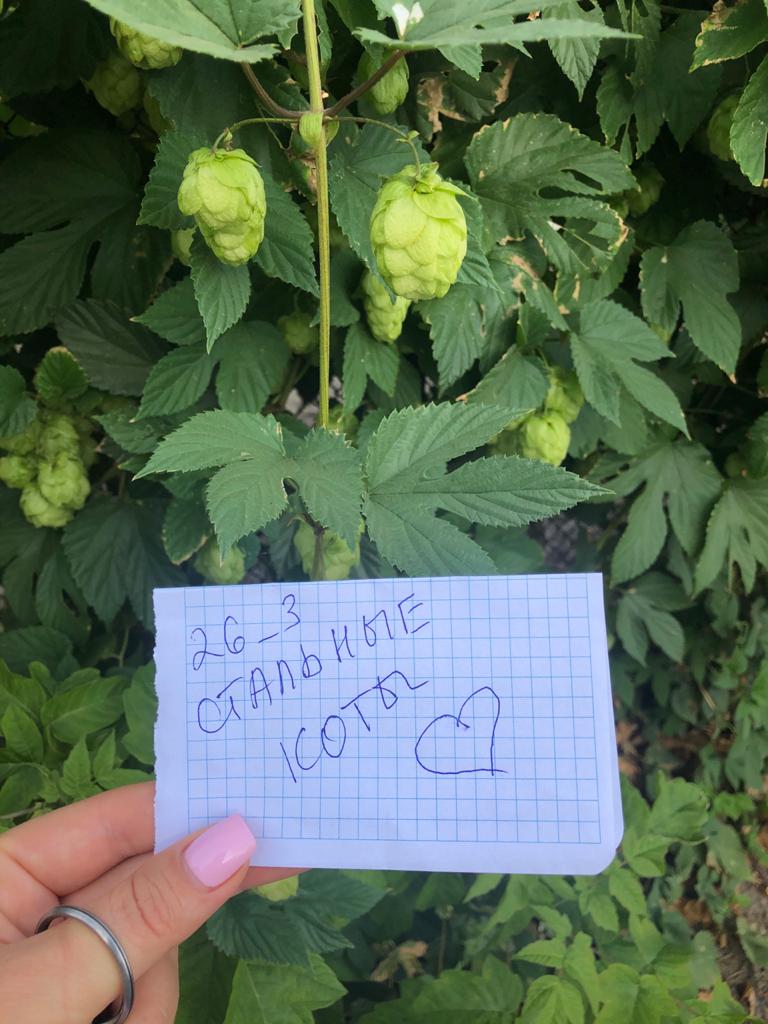 26_3
СТАЛЬНЫЕ
КОТЫ